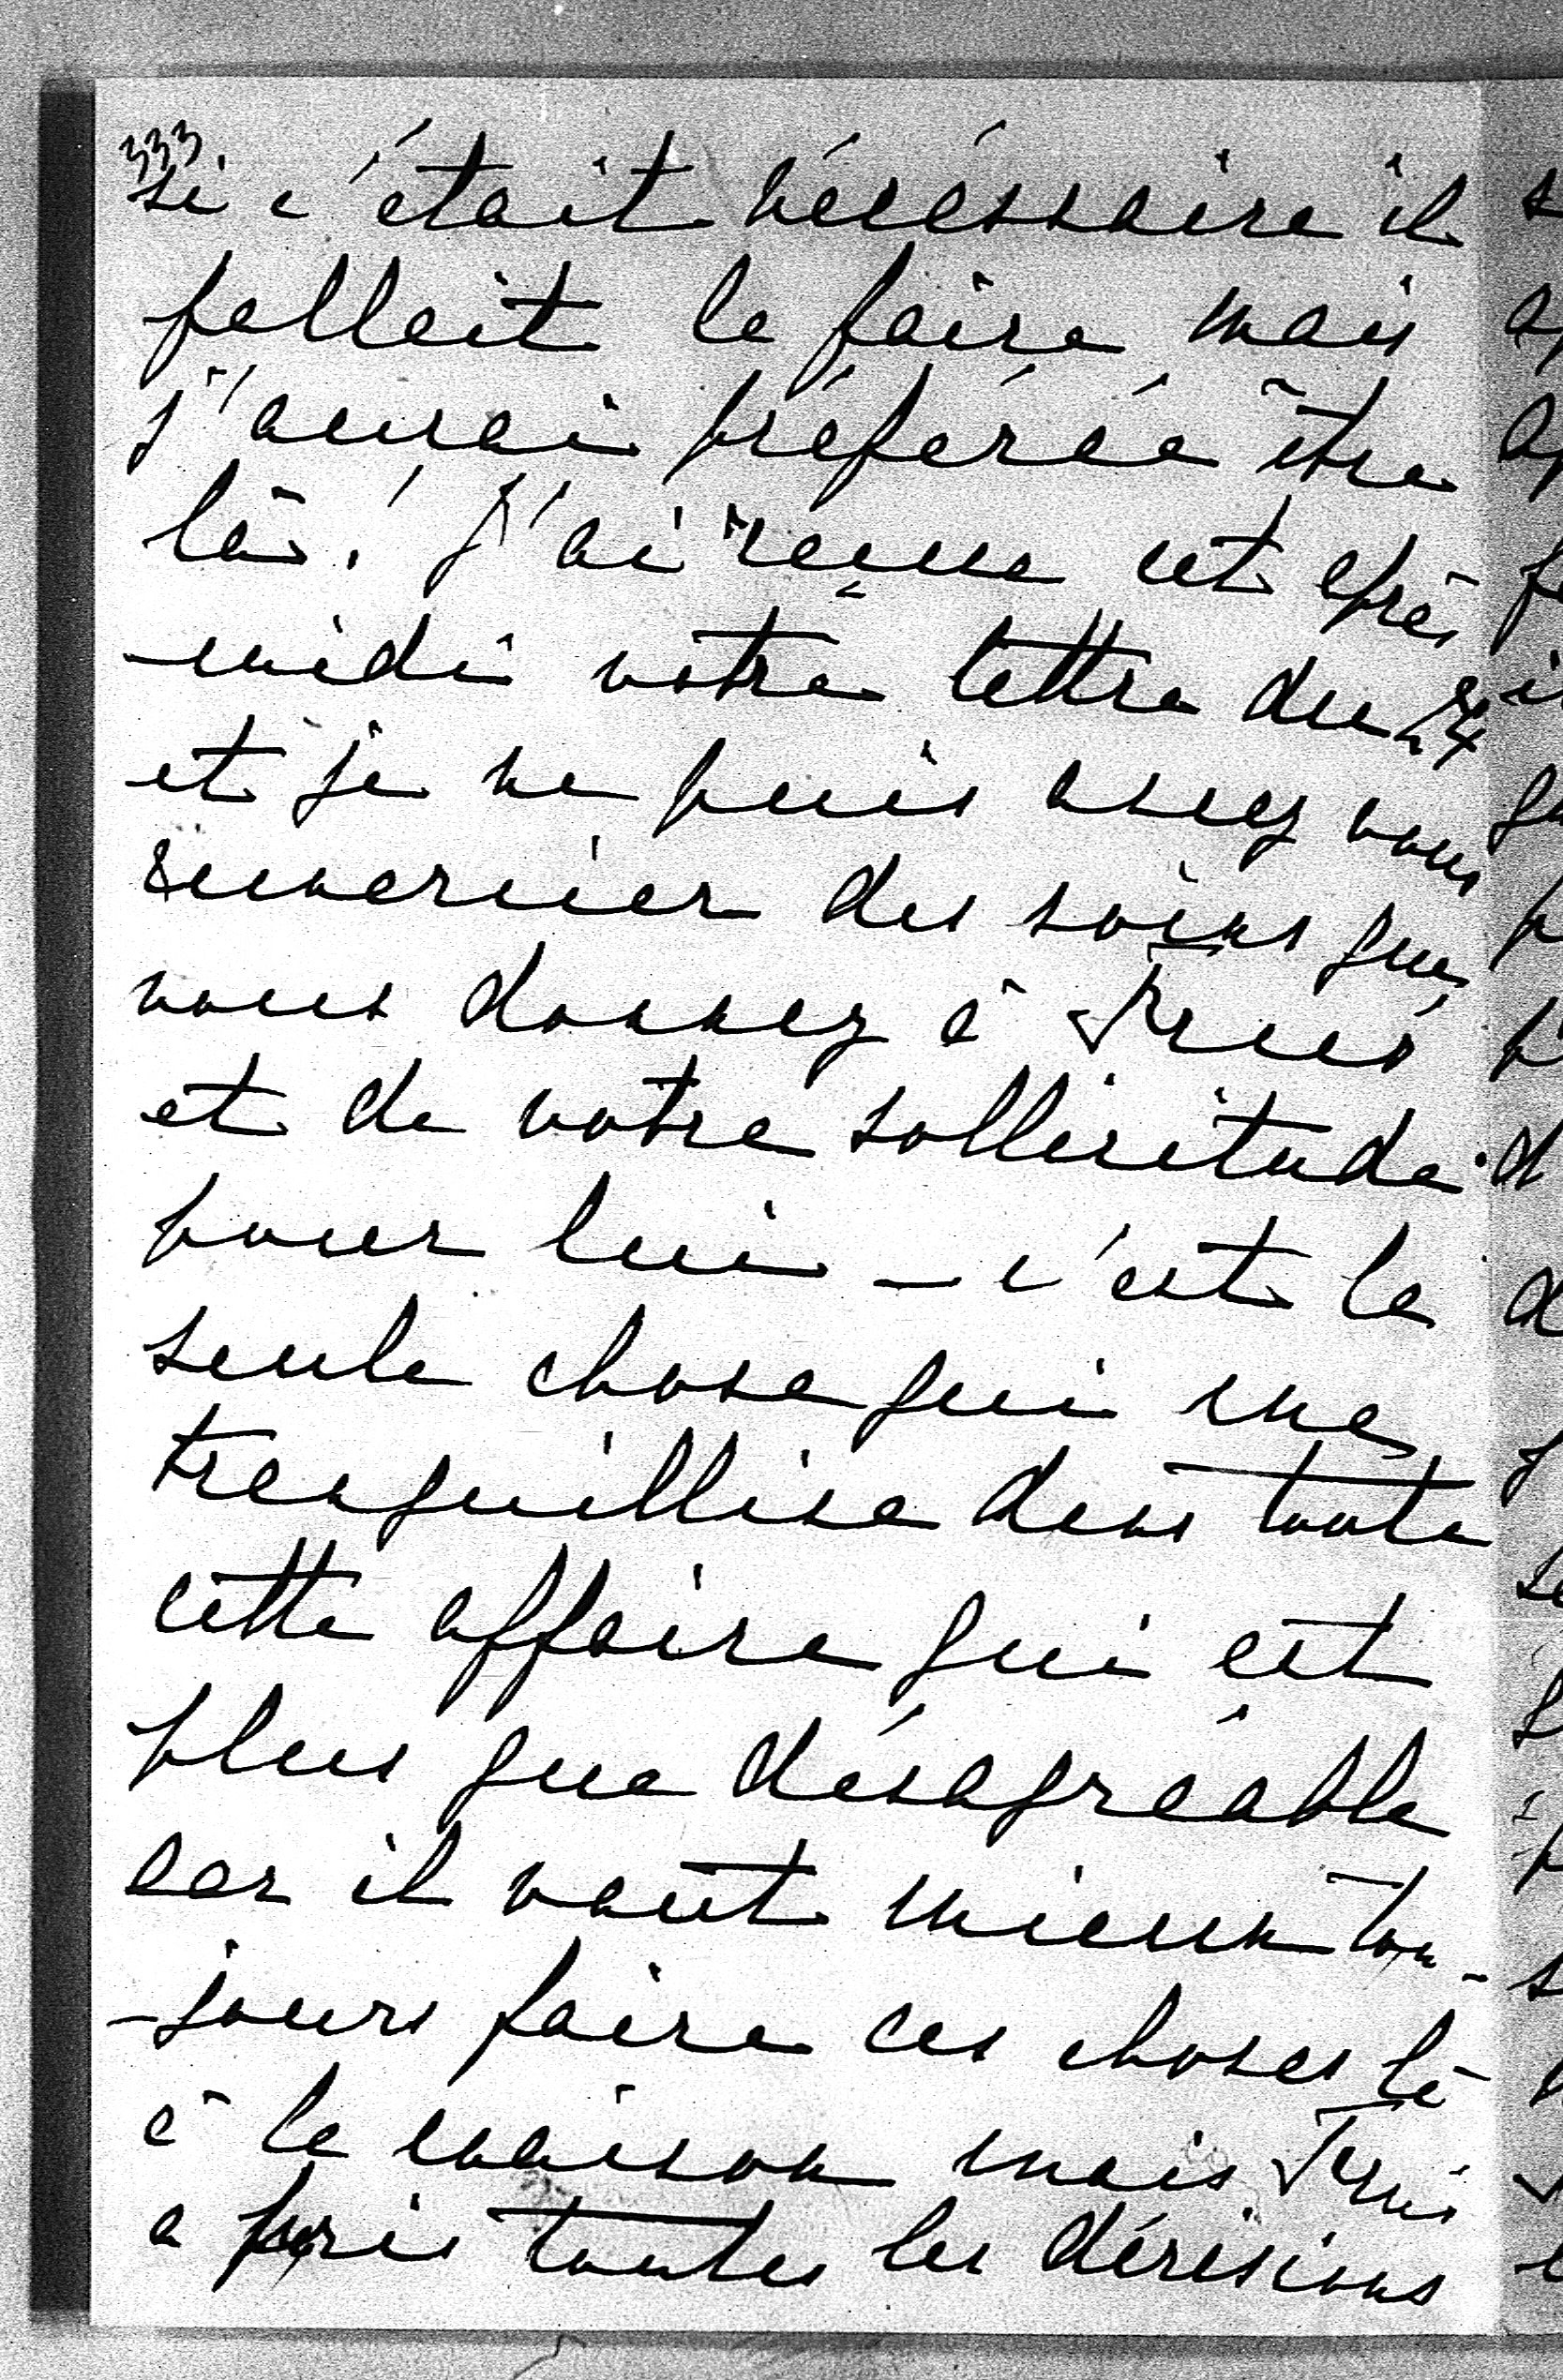 333.
si c'était nécéssaire il
fallait le faire mais
j'aurai préférée être
là! J'ai reçue cet après
-midi votre lettre du 24
et je ne puis assez vous
remercier des soins que
vous donnez à
et de votre sollicitude
pour lui — c'est la
seule chose qui me
tranquillise dans toute
cette affaire qui est
plus que désagréable
car il vaut mieux tou-
-jours faire ces choses là
à la maison mais
a pris toutes les décisions